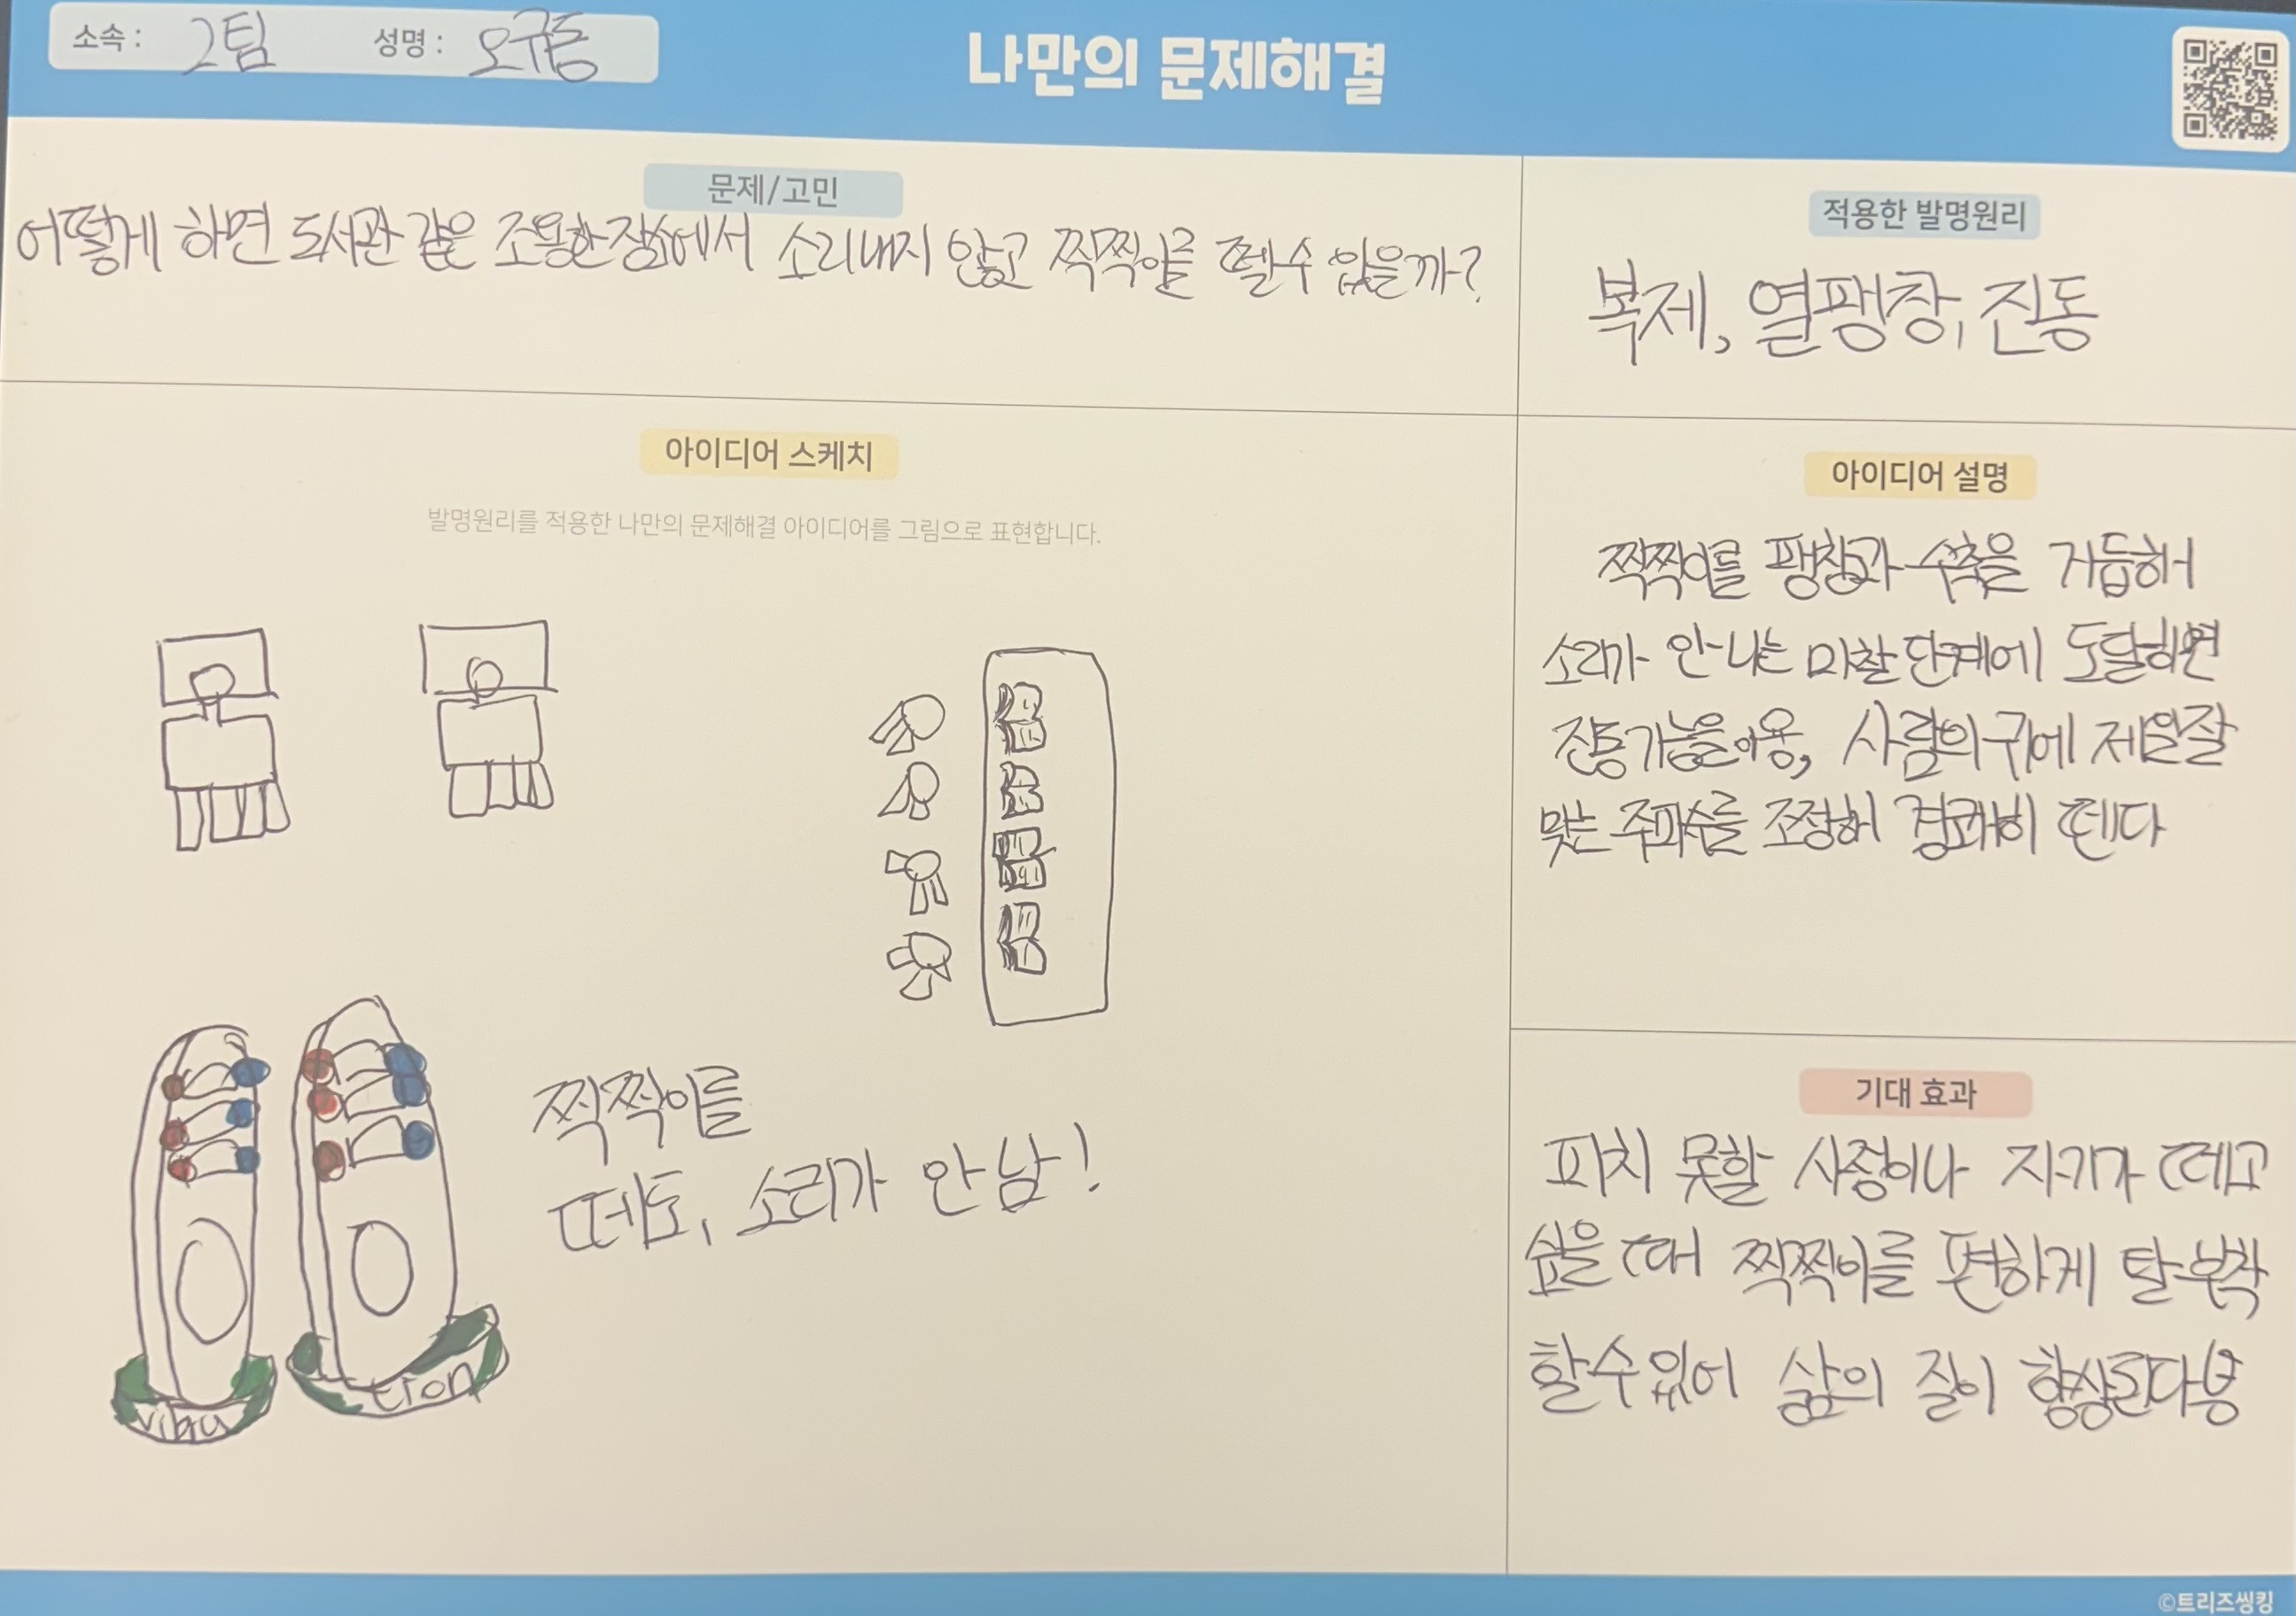 소속 : 2팀 성명 : 오규등
나만의 문제해결
문제/고민
어떻게 하면 도서관 같은 조용한 장소에서 소리내지 않고 찍찍이를 뗄 수 있을까?
적용한 발명원리
복제, 열팽창, 진동
아이디어 스케치
발명원리를 적용한 나만의 문제해결 아이디어를 그림으로 표현합니다.
찍찍이를
떼도, 소리가 안 남!
vibra
tion
아이디어 설명
찍찍이를 팽창과 수축을 거듭해
소리가 안 나는 마찰 단계에 도달하면
진동기능을 이용, 사람의 귀에 제일 잘
맞는 주파수를 조정해 경쾌히 뗀다
기대 효과
피치 못할 사정이나 자기가 떼고
싶을 때 찍찍이를 편하게 탈부착
할 수 있어 삶의 질이 향상된다
©트리즈씽킹